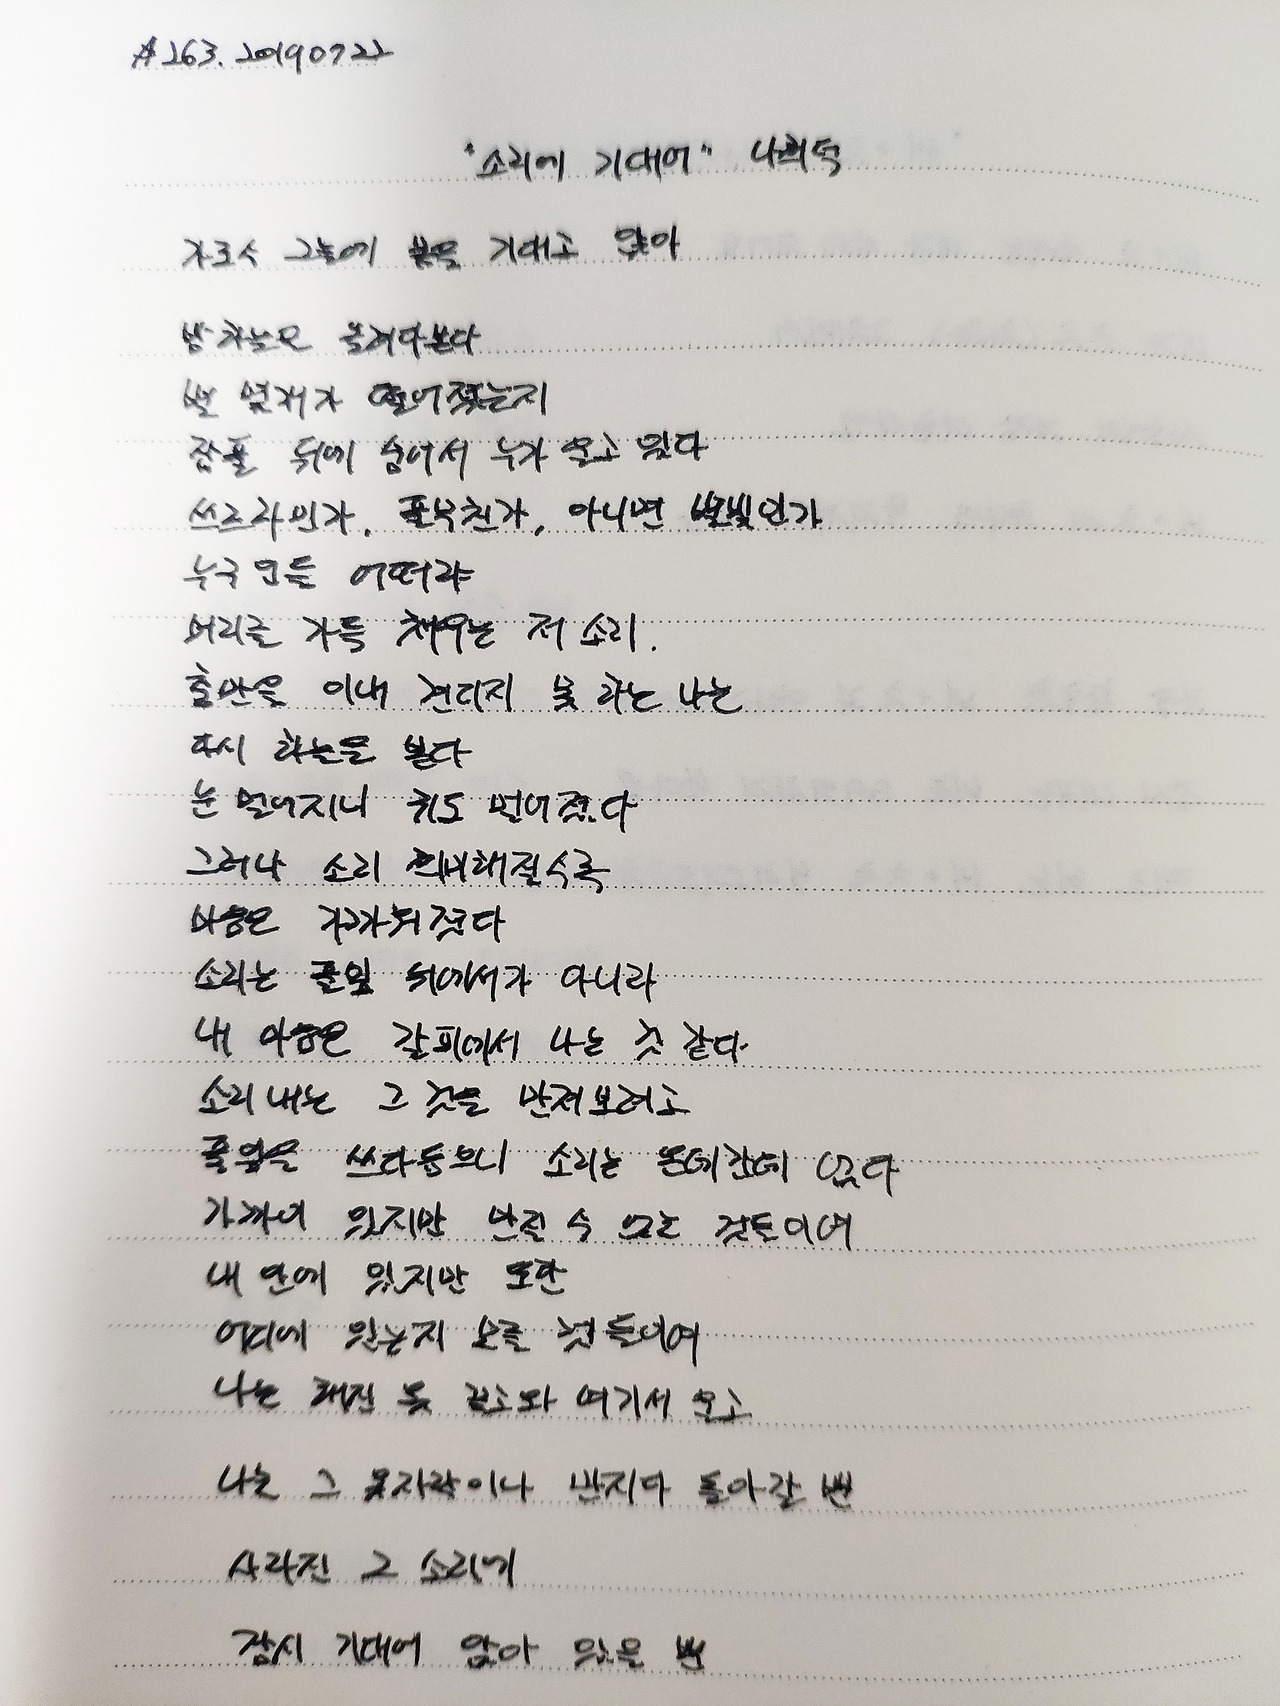 #263. 20190722
"소리에 기대어" 나희덕
가로수 그늘에 몸을 기대고 앉아
밤하늘만 올려다본다
별 몇개가 떨어졌는지
잡풀 뒤에 숨어서 누가 울고 있다
쓰르라민가, 풀무친가, 아니면 별빛인가
누구인들 어떠랴
머리를 가득 채우는 저 소리.
충만을 이내 견디지 못 하는 나는
다시 하늘을 본다
눈 멀어지니 귀도 멀어졌다
그러나 소리 희미해질수록
마음은 가까워졌다
소리는 풀잎 뒤에서가 아니라
내 마음 갈피에서 나는 것 같다.
소리내는 그 것을 만져보려고
풀잎을 쓰다듬으니 소리는 온데간데 없다
가까이 있지만 만질 수 없는 것들이여
내 안에 있지만 또한
어디에 있는지 모를 것들이여
나는 해진 옷 걸고와 여기서 울고
나는 그 옷자락이나 만지다 돌아갈 뿐
사라진 그 소리에
잠시 기대어 앉아 있을 뿐